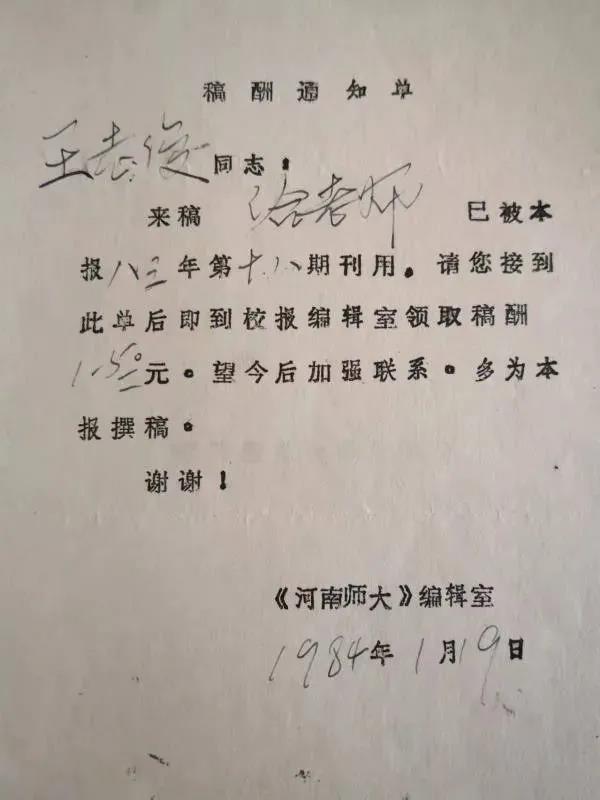 稿酬通知单
王志俊同志：
来稿 给老师 已被本
报八三年第十八期刊用。请您接到
此单后即到校报编辑室领取稿酬
1.50元。望今后加强联系。多为本
报撰稿。
谢谢！
《河南师大》编辑室
1984年1月19日